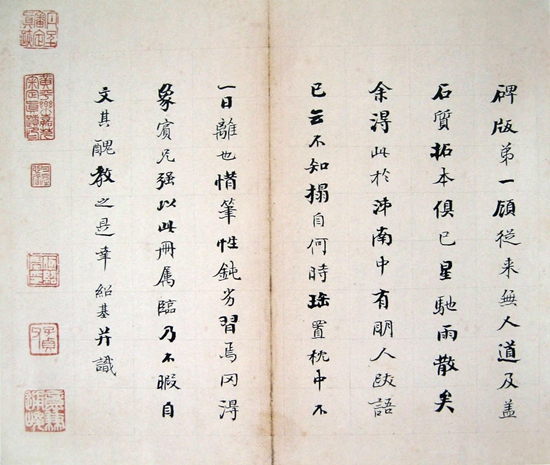 碑版第一顧從来無人道及盖
石質拓本俱已星馳雨散矣
余淂此於泲南中有明人跋語
已云不知搨自何時珤置枕中不
一日離也惜筆性鈍劣習焉罔淂
象賓兄强以此冊属臨乃不暇自
文其醜教之是幸 紹基并識
子貞